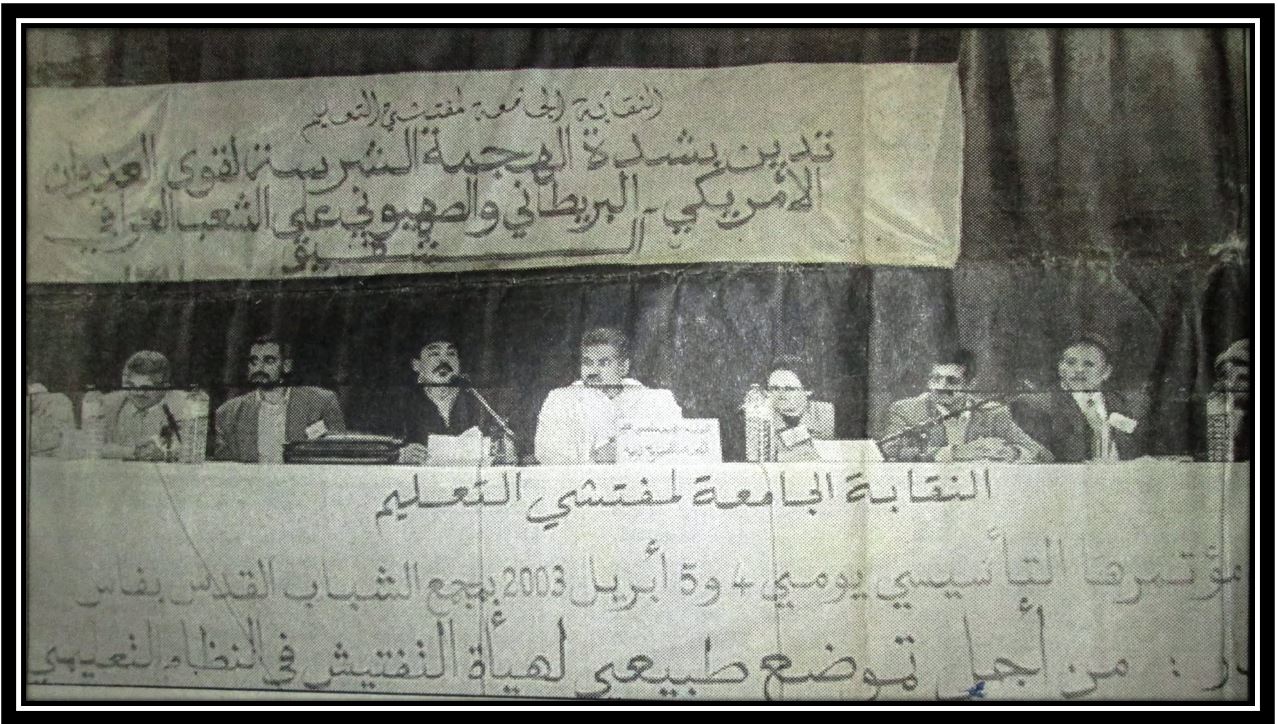 النقابة الجامعة لمفتشي التعليم
تدين بشدة الهجمة الشرسة لقوى العدوان
الأمريكي - البريطاني والصهيوني على الشعب العراقي
الشقيق
النقابة الجامعة لمفتشي التعليم
مؤتمرها التأسيسي يومي 4 و5 أبريل 2003 بمجمع الشباب القدس بفاس
من أجل تموضع طبيعي لهيأة التفتيش في النظام التعليمي